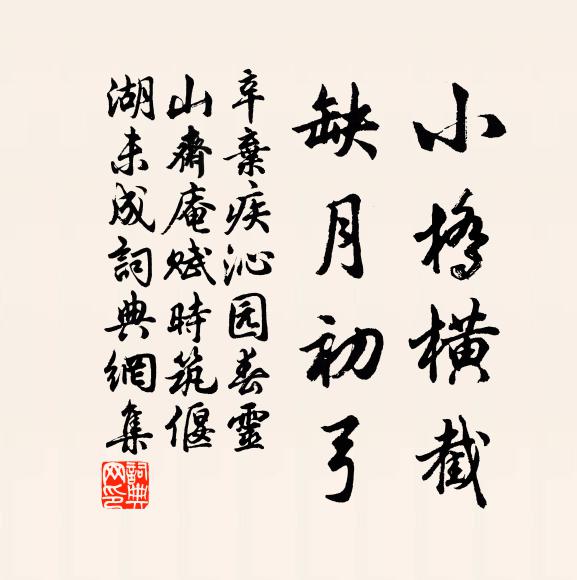 小橋橫截
缺月初弓
辛棄疾沁园春靈
山齋庵赋時筑偃
湖未成詞典網集
詞典
网印